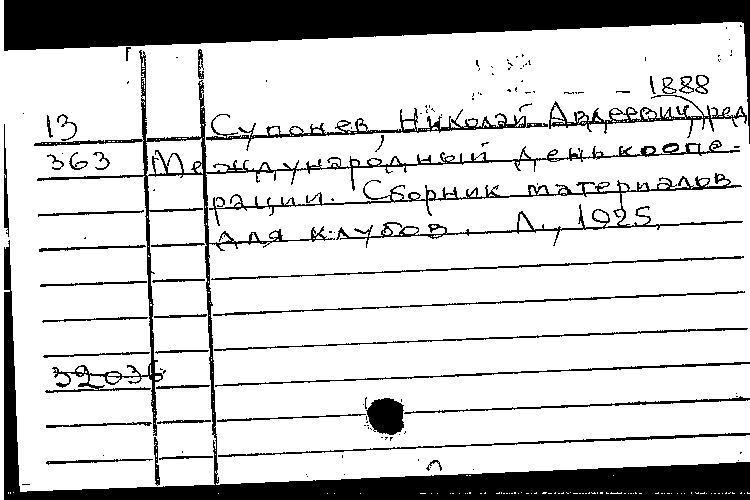 1888
13 Супонев, Николай Авдеевич, ред
363 Международный день коопе-
рации. Сборник материалов
для клубов. Л., 1925.
32036